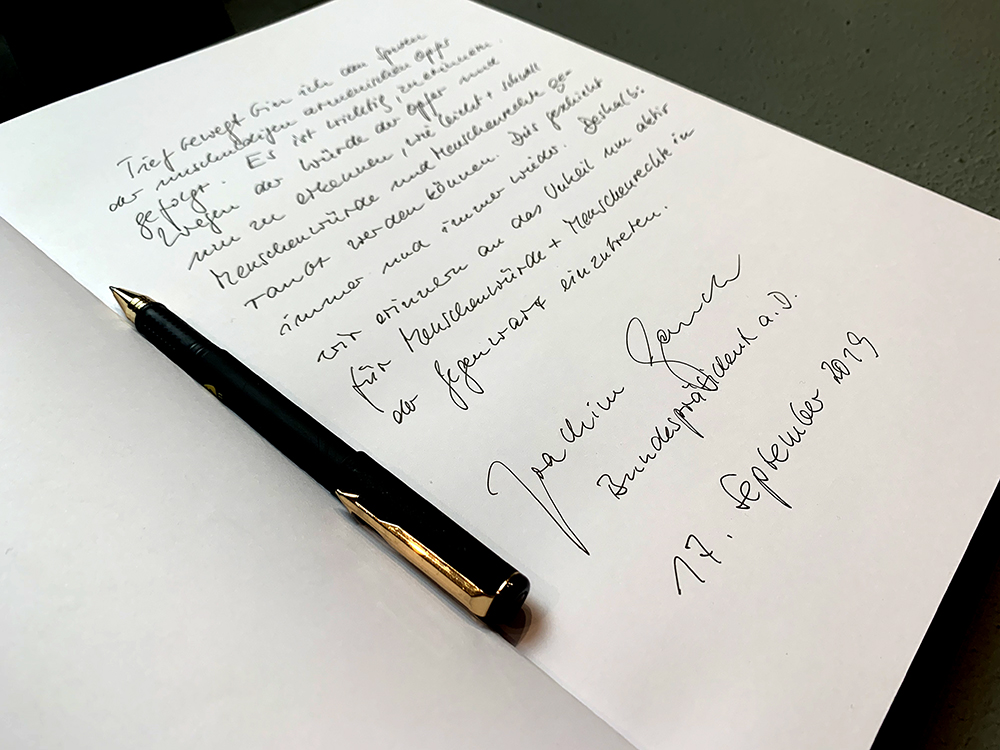 Tief bewegt bin ich den Spuren
der unschuldigen armenischen Opfer
gefolgt. Es ist wichtig, zu erinnern.
Wegen der Würde der Opfer und
um zu erkennen, wie leicht + schnell
Menschenwürde und Menschenrechte ge-
raubt werden können. Dies geschieht
immer und immer wieder. Deshalb:
wir erinnern an das Unheil um aktiv
für Menschenwürde + Menschenrechte in
der Gegenwart einzutreten.
Joachim Gauck
Bundespräsident a.D.
17. September 2019